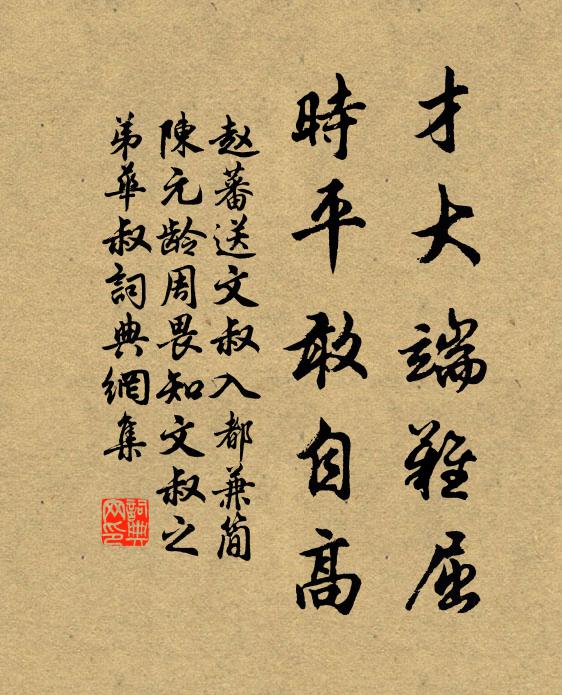 才大端難屈
時平敢自高
赵蕃送文叔入都兼简
陳元龄周畏知文叔之
弟華叔詞典網集
詞典网印